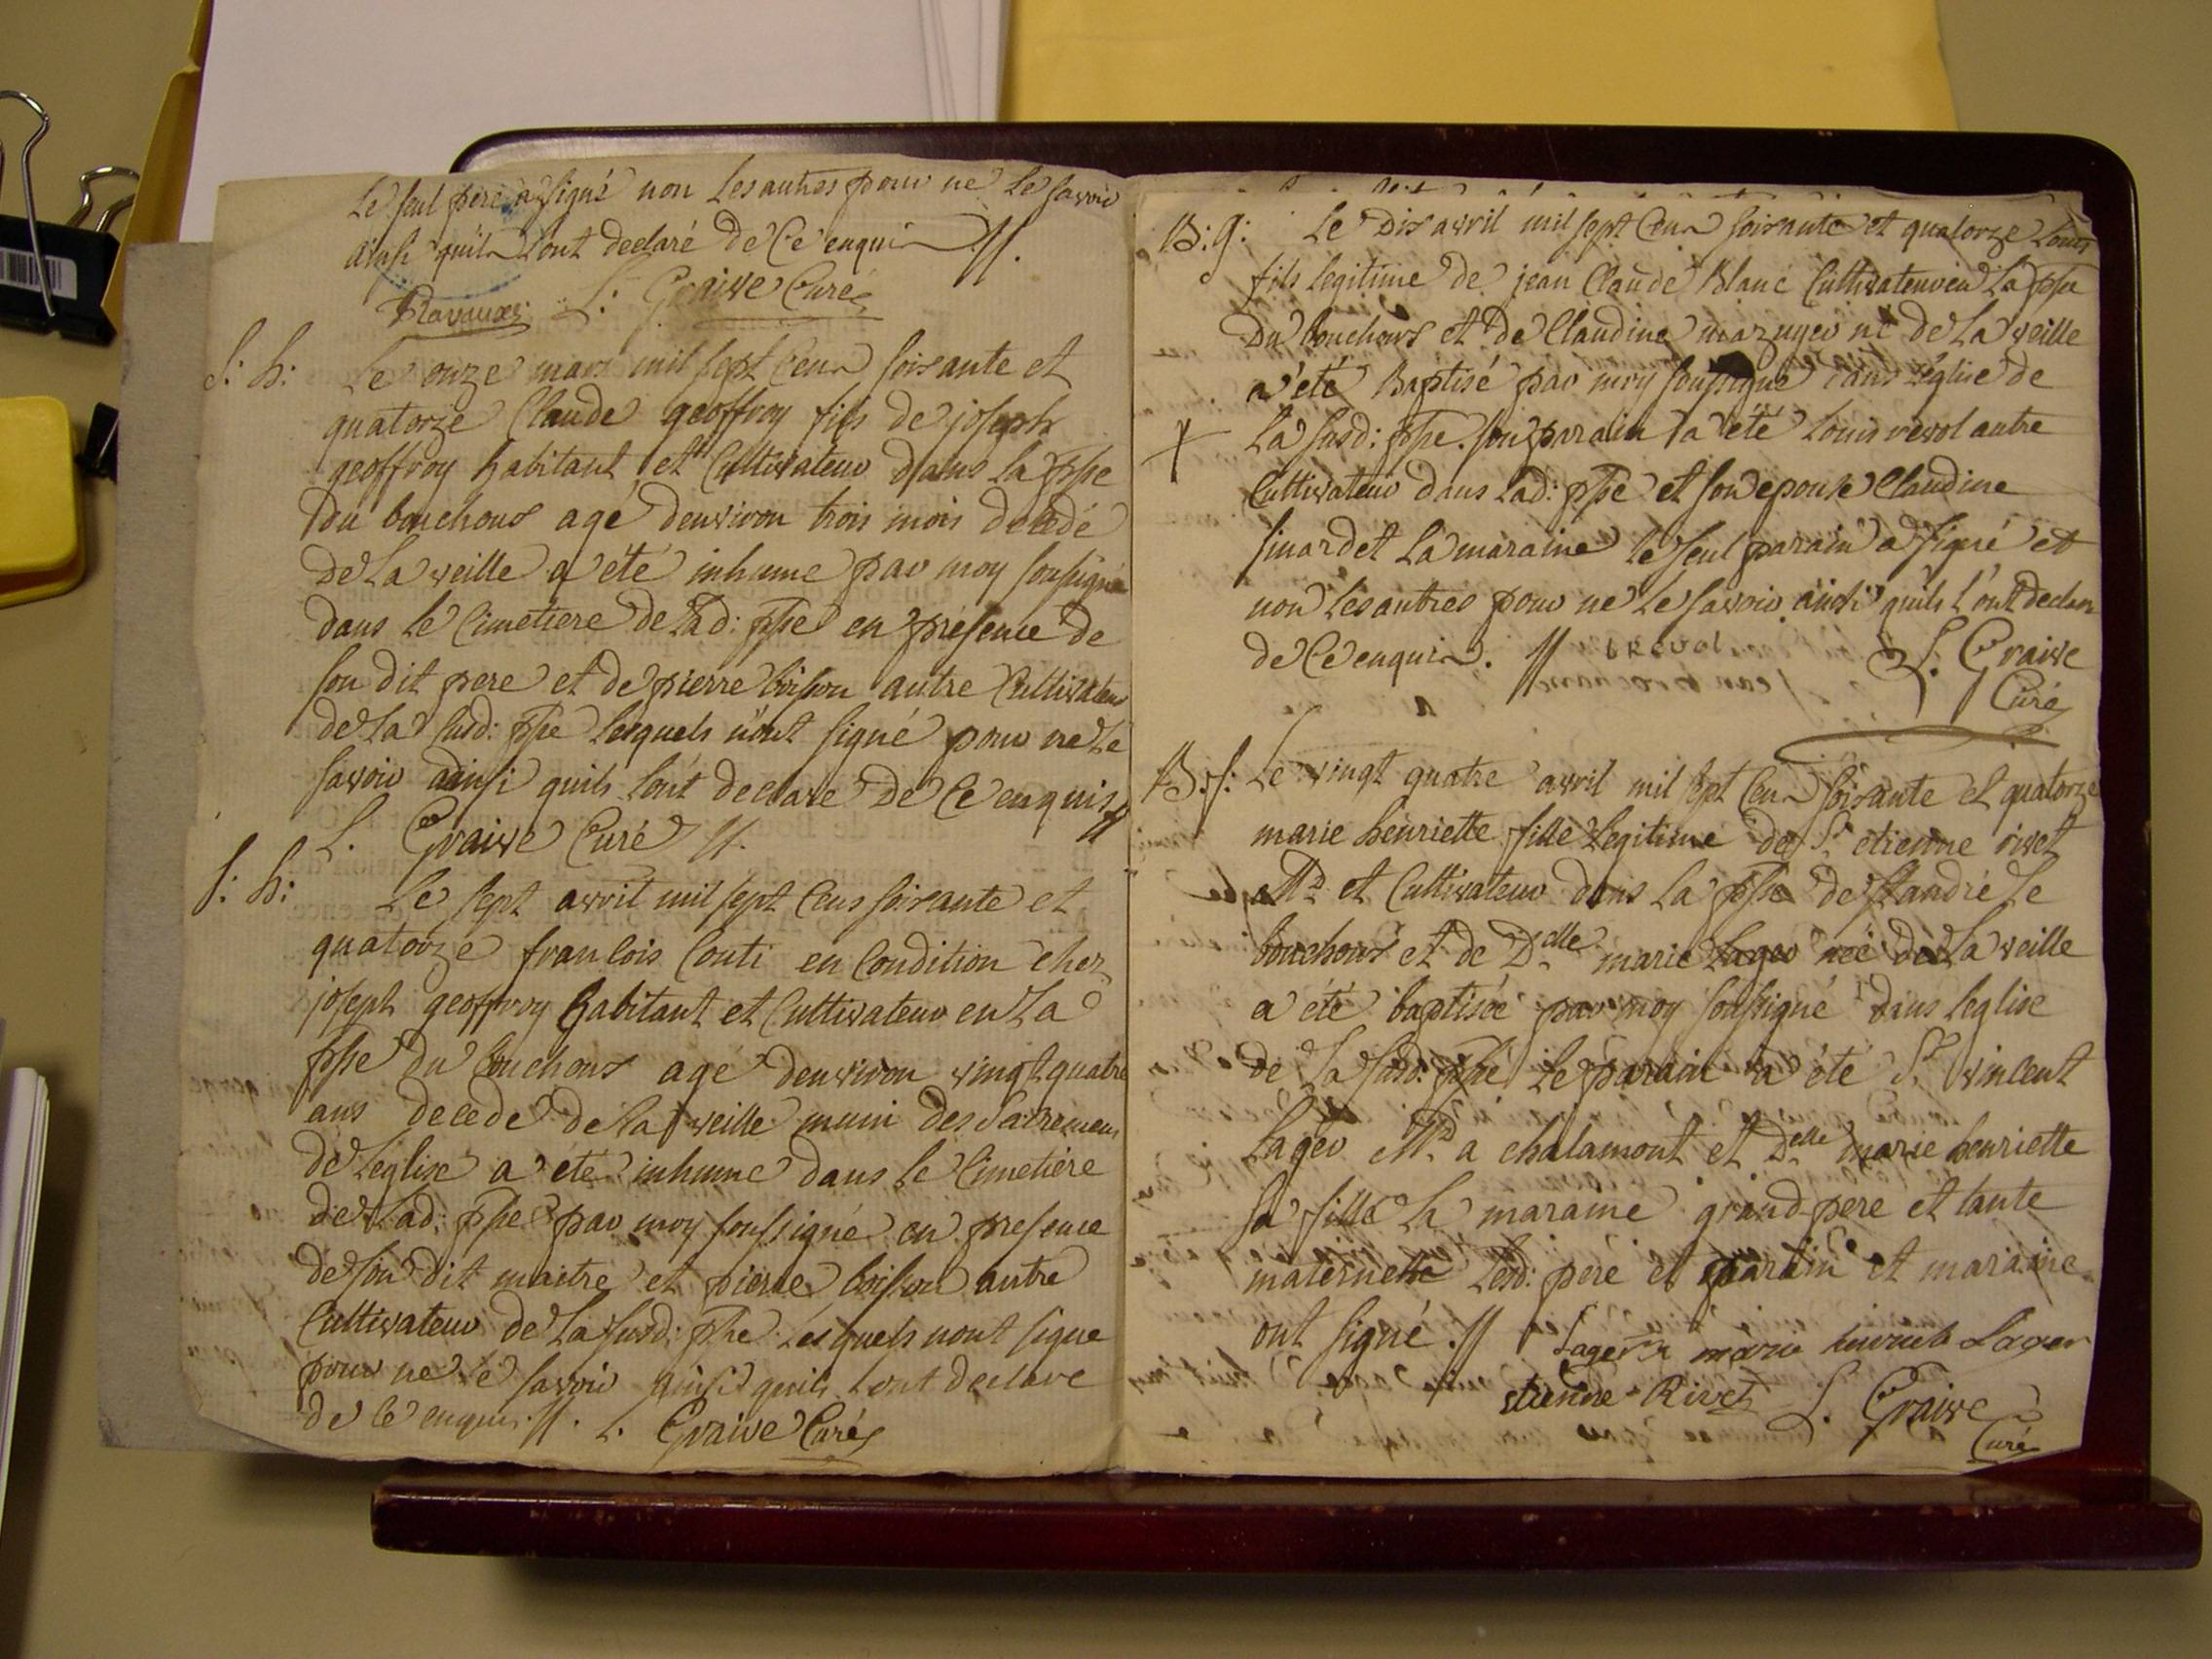 Le seul pere a signé non les autres pour ne le savoir
ainsi quils lont declaré de ce enquis //.
Ravaux L: Graive Curé
S: h: Le onze mars mil sept cens soixante et
quatorze Claude geoffroy fils de joseph
geoffroy habitant et Cultivateur dans la ppse
du bouchoux agé denviron trois mois decedé
de la veille a été inhumé par moy soussigné
dans le Cimetiere de lad: ppse en présence de
son dit pere et de pierre boisson autre Cultivateur
de la susd: ppse lesquels n'ont signé pour ne le
savoir ainsi quils l'ont declare de ce enquis //
L. Graive Curé //.
S: h: Le sept avril mil sept cens soixante et
quatorze francois Couti en Condition chez
joseph geoffroy habitant et Cultivateur en la
ppse du bouchoux agé denviron vingt quatre
ans decedé de la veille muni des Sacremens
de leglise a été inhumé dans le Cimetière
de lad: ppse par moy soussigné en presence
de son dit maitre et pierre boisson autre
Cultivateur de la susd: ppse lesquels nont signe
pour ne le savoir ainsi quils lont declare
de ce enquis //. L. Graive Curé
B: g: Le Dix avril mil sept cens soixante et quatorze Louis
fils legitime de jean Claude Blanc Cultivateur en la ppse
Du bouchoux et de Claudine mazuyer né de la veille
a été Baptisé par moy soussigné dans l'église de
la susd: ppse. son parain a été Louis revol autre
Cultivateur dans lad: ppse et son epouse Claudine
sinardet la maraine le seul parain a signé et
non les autres pour ne le savoir ainsi quils l'ont declare
de ce enquis. // L. Graive
Curé
B: f: Le vingt quatre avril mil sept cens soixante et quatorze
marie henriette fille legitime de Sr etienne rivet
Md et Cultivateur dans la ppse de st andré le
bouchoux et de Delle marie Lager née de la veille
a été baptisée par moy soussigné dans leglise
de la susd: ppse le parain a été Sr vincent
Lager Md a chalamont et Delle marie henriette
sa fille la maraine grand pere et tante
maternelle lesd: pere et parain et maraine
ont signé. // Lager marie henriete Lager
etienne Rivet L. Graive
Curé